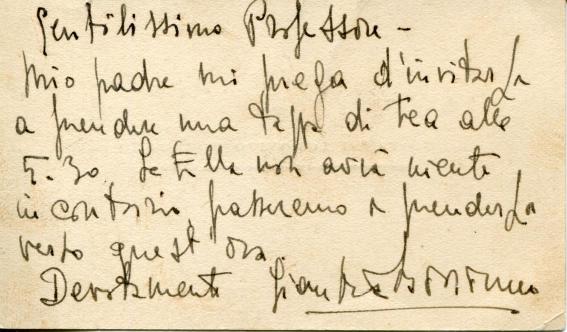 Gentilissimo Professore –
mio padre mi prega d'invitarLa
a prendere una tappa di tea alle
5.30. Se Ella non avrà niente
in contrario, passeremo a prenderLa
verso quest'ora
Devotamente